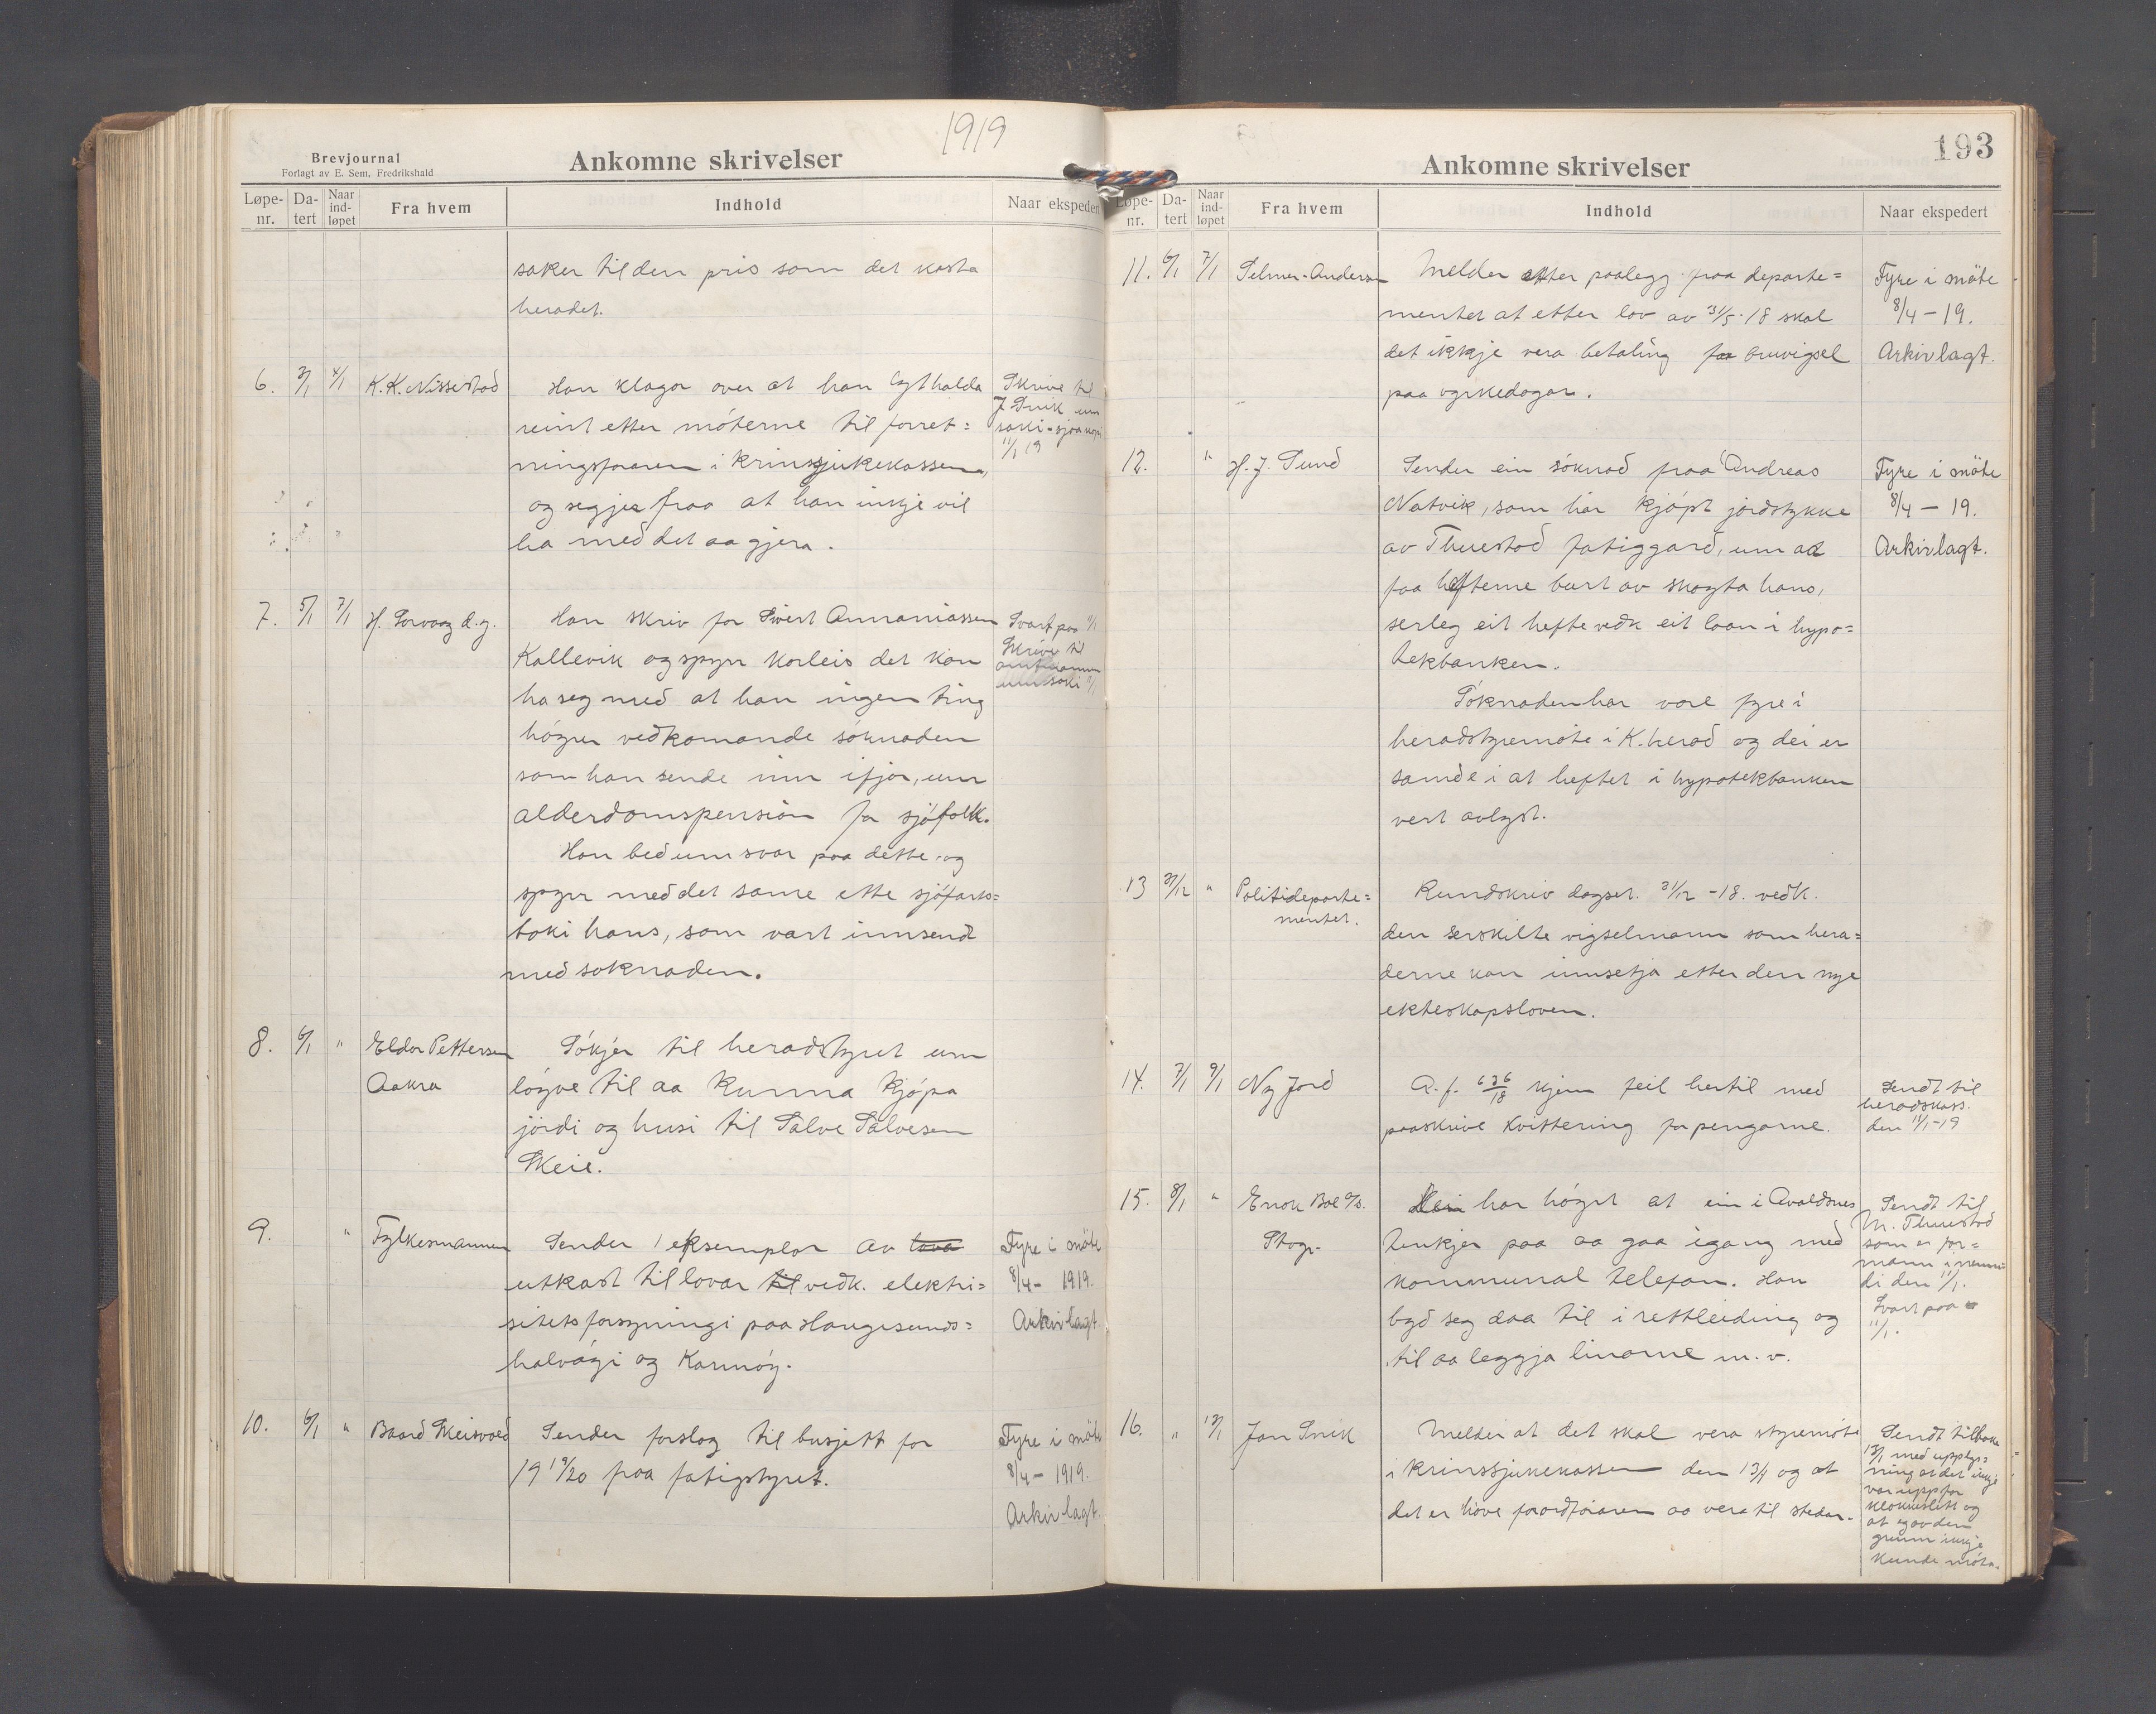 1919
Brevjournal
Forlagt av E. Sem, Fredrikshald
Ankomne skrivelser
Løpe-nr. Da-tert Naar ind-løpet Fra hvem Indhold Naar ekspedert
saker til den pris som det kosta
heradet.
6. 3/1 4/1 K. K. Nissestad
Han klagar over at han
reint etter móterne til forret=
ningsforaren i krinssjukekassen,
og segjer fraa at han inkje vil
ha med det aa gjera.
Skrive til
J Snik um
11/1 19
7. 5/1 7/1 H. Sorvaag d.y.
Han skriv for Sivert Annaniassen
Kallevik og spyr korleis det kan
ha seg med at han ingen ting
hóyrer vedkomande sóknaden
som han sende inn ifjor, um
alderdomspension for sjófolk.
Han bed um svar paa dette og
spyr med det same ette sjófarts=
boki hans, som vart innsendt
med soknaden.
Svart paa 9/1
Skrive til
amtmannen
um saki
8. 6/1 " Eldor Pettersen
Aakra
Sókjer til heradstyret um
lóyve til aa kunna kjópa
jórdi og husi til Salve Salvesen
Skeie.
9. " Fylkesmannen
Sender 1 eksemplar av lova
utkast til lovar til vedk. elektri=
sitetsforsyningi paa Haugesunds=
halvógi og Karmóy.
Fyre i móte
8/4 - 1919.
Arkivlagt.
10. 6/1 " Baard Skeisvoll
Sender forslag til busjett for
19 19/20 fraa fatigstyret.
Fyre i móte
8/4 - 1919.
Arkivlagt.
Ankomne skrivelser
193
Løpe-nr. Da-tert Naar ind-løpet Fra hvem Indhold Naar ekspedert
11. 6/1 7/1 Selmer-Anderssen
Melder etter paalegg fraa departe=
mentet at etter lov av 31/5-18 skal
det ikkje vera betaling for bruvigsel
paa yrkedagar.
Fyre i móte
8/4 - 19.
Arkivlagt.
12. " H. J. Sund
Sender ein sóknad fraa Andreas
Natvik, som har kjópt jordstykke
av Thuestad fatiggard, um aa
faa hefterne burt av skøyta hans,
serleg eit hefte vedk eit laan i hypo=
tekbanken.
Sóknaden har vore fyre i
heradstyremóte i K. herad og dei er
samde i at heftet i hypotekbanken
vert avlyst.
Fyre i móte
8/4 - 19.
Arkivlagt.
13 31/12 " Politideparte=
mentet.
Rundskriv dagset. 31/12 -18. vedk.
den serskilte vigselmann som hera=
derne kan innsetja etter den nye
ekteskapsloven.
14. 7/1 9/1 Ny Jord
A. f. 636/18 kjem feil hertil med
paaskrive kvittering for pengarne.
Sendt til
heradskass.
den 11/1-19
15. 8/1 " Enok Boe a/s.
Stvgr.
Han har hóyrt at ein i Avaldsnes
tenkjer paa aa gaa igang med
kommunal telefon. Han
byd seg daa til i rettleiding og
til aa leggja linorne m. v.
Sendt til
M. Thuestad
som er for=
mann i nemn
di den 11/1.
Svart paa
11/1.
16. " 13/1 Jon Snik
Melder at det skal vera styremóte
i krinssjukekassen den 13/1 og at
det er hóve for ordforaren aa vera til stedar.
Sendt tilbake
13/1 med upplys=
ning at det inkje
var upp for
klokkeslett og
at eg av den
grunn inkje
kunde móta.